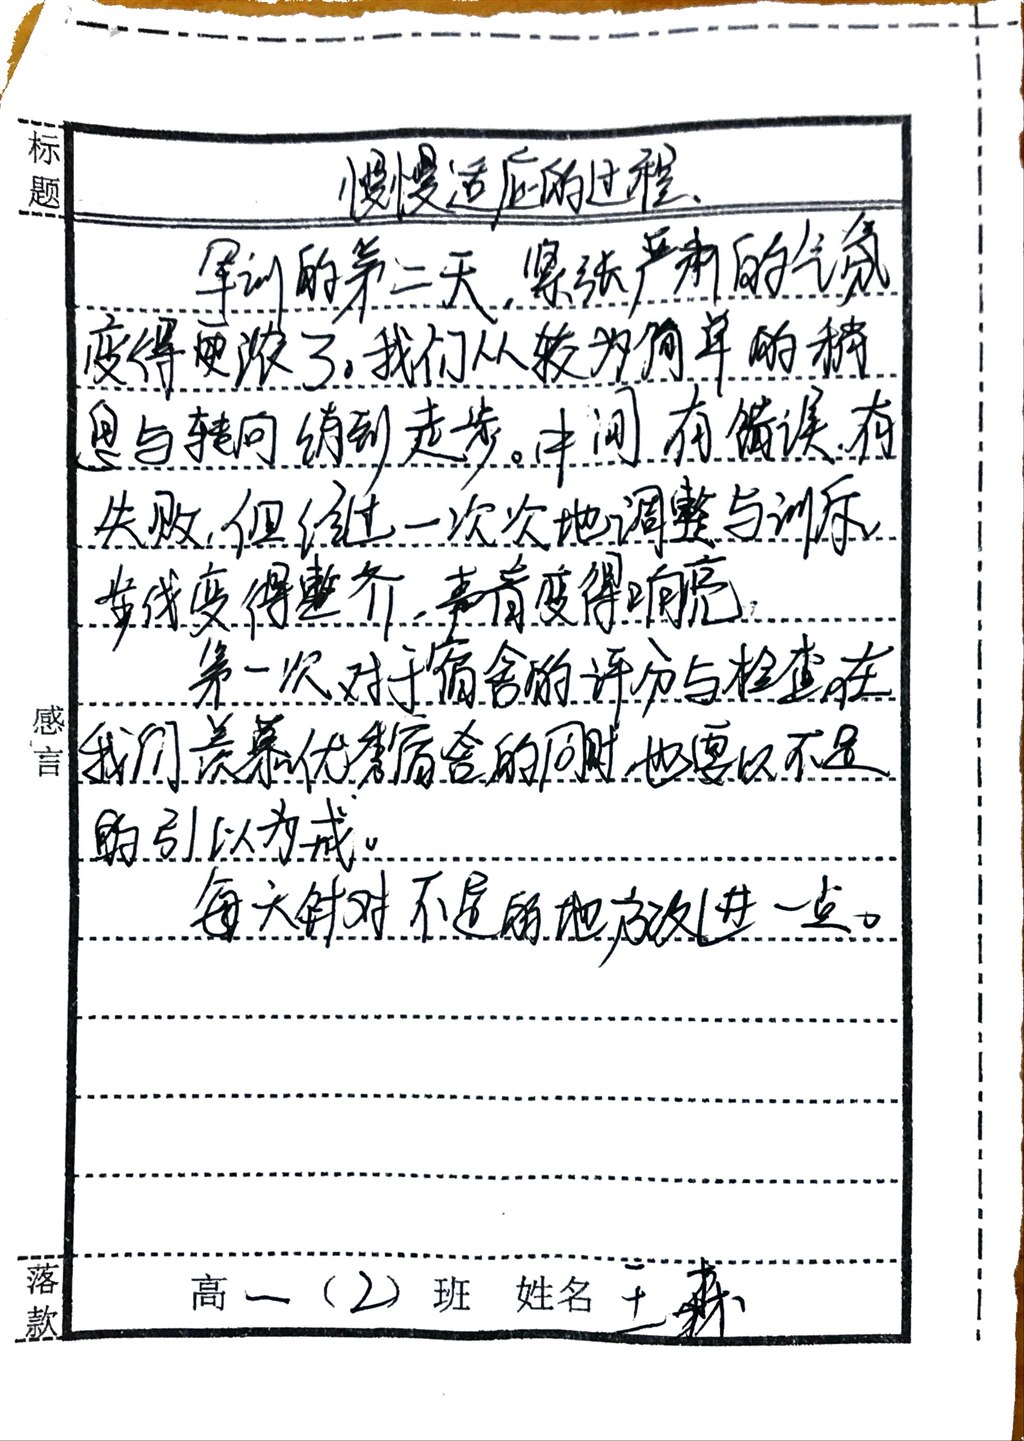 标题
慢慢适应的过程、
军训的第二天，紧张严肃的气氛
变得更浓了。我们从较为简单的稍
息与转向 练到走步。中间有错误、有
失败，但经过一次次地调整与训斥，
步伐变得整齐，声音变得响亮。
第一次对于宿舍的评分与检查，在
我们羡慕优秀宿舍的同时，也要以不足
的引以为戒。
每天针对不足的地方改进一点。
感言
落款
高一（2）班 姓名 王